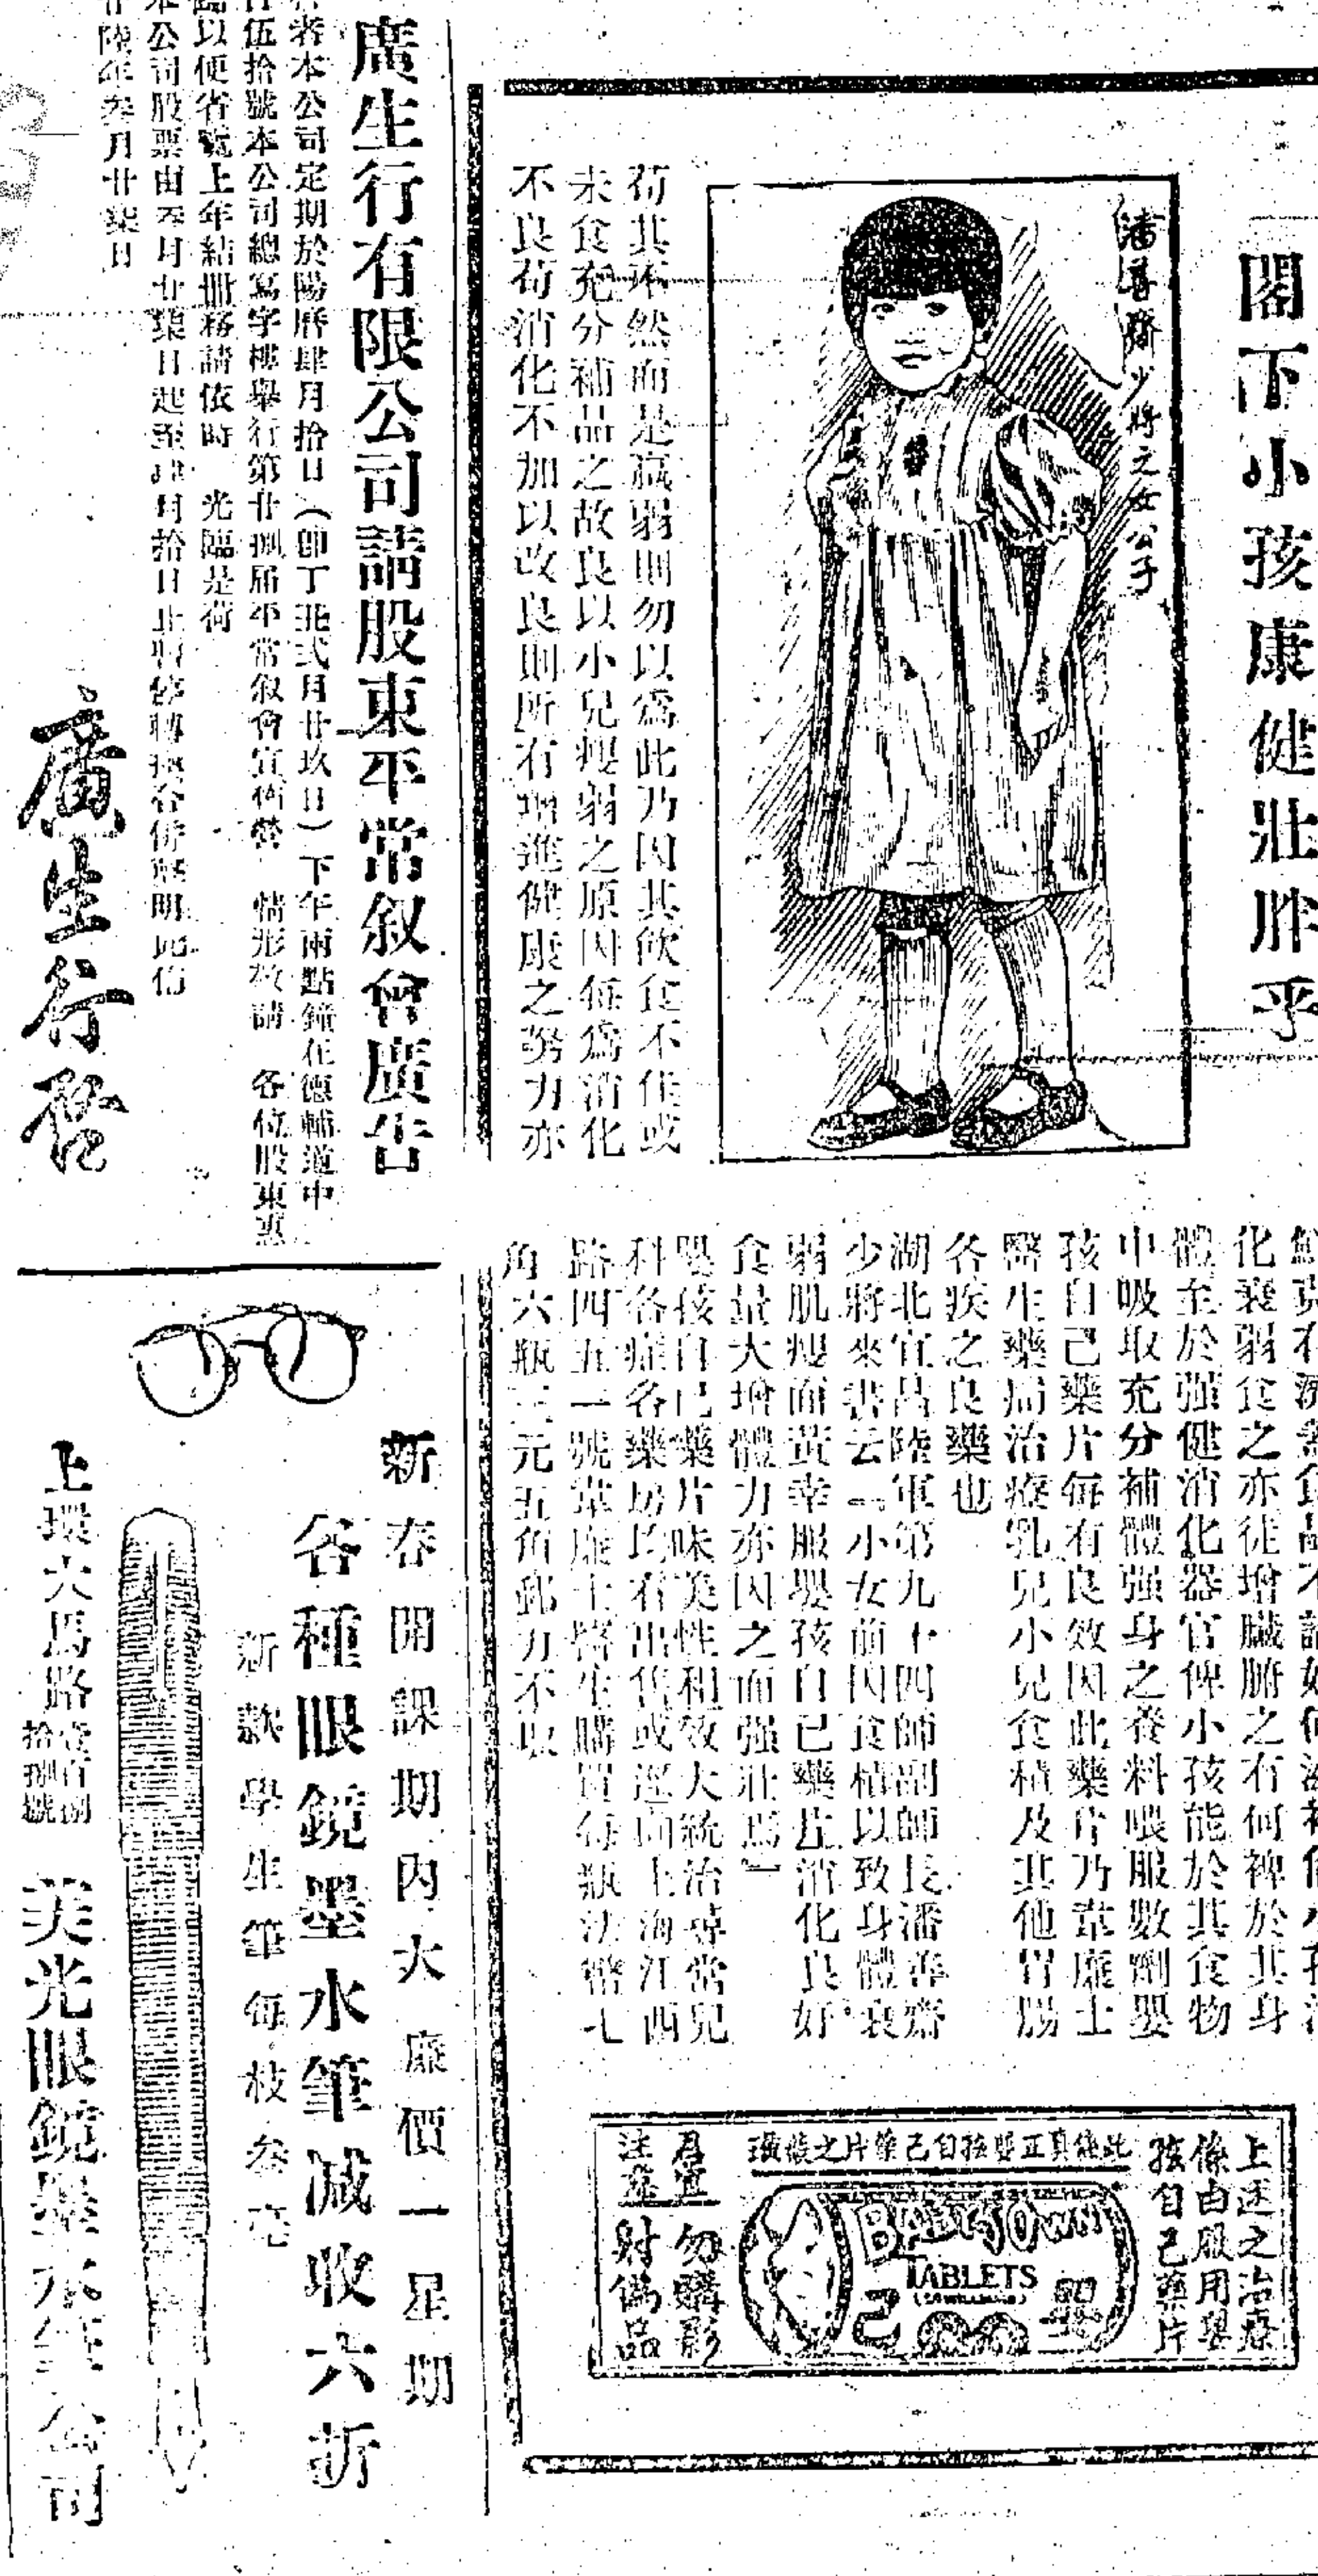 閣下小孩康健壯胖乎
潘善齋少將之女公子
苟其不然而是羸弱則勿以爲此乃因其飲食不佳或
未食充分補品之故良以小兒瘦弱之原因每爲消化
不良苟消化不加以改良則所有增進健康之努力亦
化衰弱食之亦徒增臟腑之有何裨於其身
體至於强健消化器官俾小孩能於其食物
中吸取充分補體强身之養料喂服數劑嬰
孩自己藥片每有良效因此藥片乃韋廉士
醫生藥局治療乳兒小兒食積及其他胃腸
各疾之良藥也
湖北宜昌陸軍第九十四師副師長潘善齋
少將來書云「小女前因食積以致身體衰
弱肌瘦面黃幸服嬰孩自己藥片消化良好
食量大增體力亦因之而强壯焉」
嬰孩自己藥片味美性和效大統治尋常兒
科各症各藥房均有出售或逕向上海江西
路四五一號韋廉士醫生購買每瓶法幣七
角六瓶三元五角郵力不取
上述之治療
係由服用嬰
孩自己藥片
此係真正嬰孩自己藥片之裝璜
BABY'S OWN
TABLETS
君宜注意
勿購影
射僞品
廣生行有限公司請股東平常敘會廣告
者本公司定期於陽曆肆月拾日(卽丁丑弍月廿玖日)下午兩點鐘在德輔道中
伍拾號本公司總寫字樓舉行第廿捌屆平常敘會宣佈營 情形敬請 各位股東惠
臨以便省覽上年結冊務請依時 光臨是荷
本公司股票由叁月廿柒日起至肆月拾日止暫停轉
廿陸年叁月廿柒日
廣生行啓
新春開課期內大廉價一星期
各種眼鏡墨水筆減收六折
新款學生筆每枝叁毫
上環大馬路壹百捌拾捌號
美光眼鏡墨水筆公司